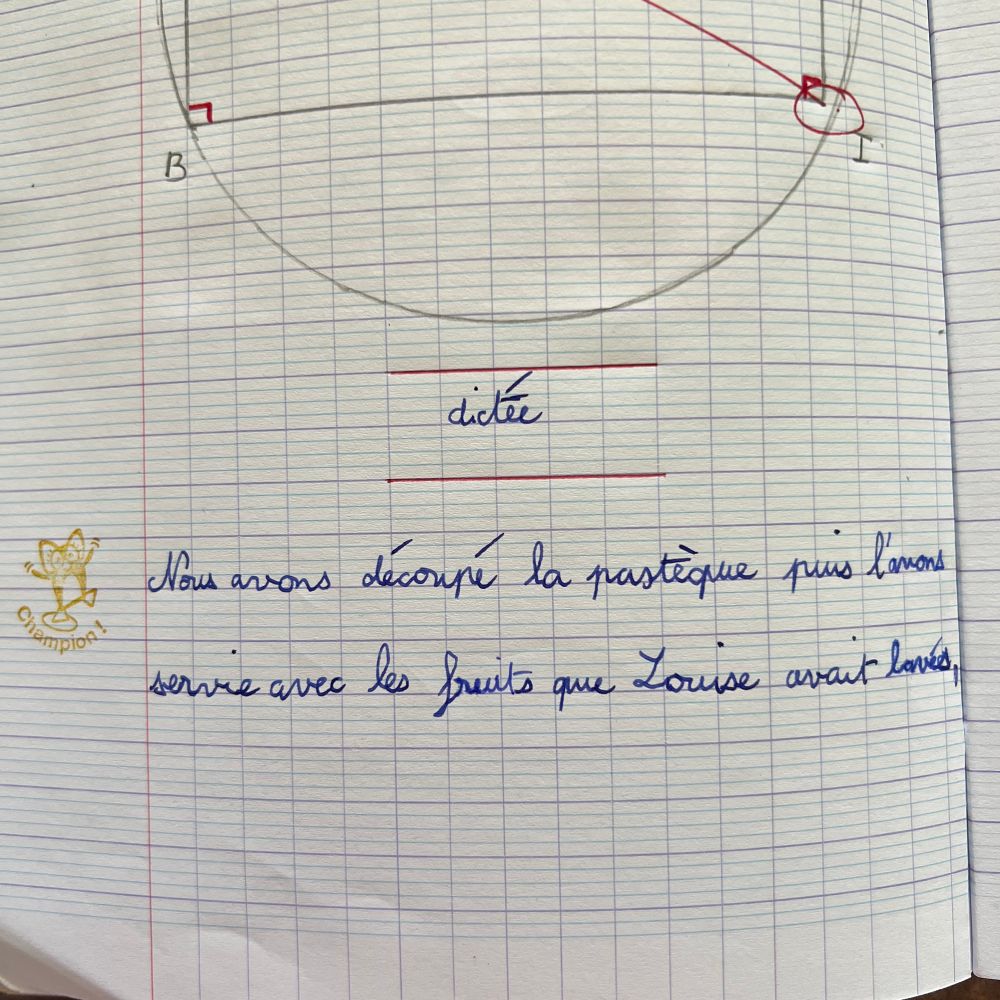 B
I
dictée
Nous avons découpé la pastèque puis l'avons
Champion !
servie avec les fruits que Louise avait lavés,